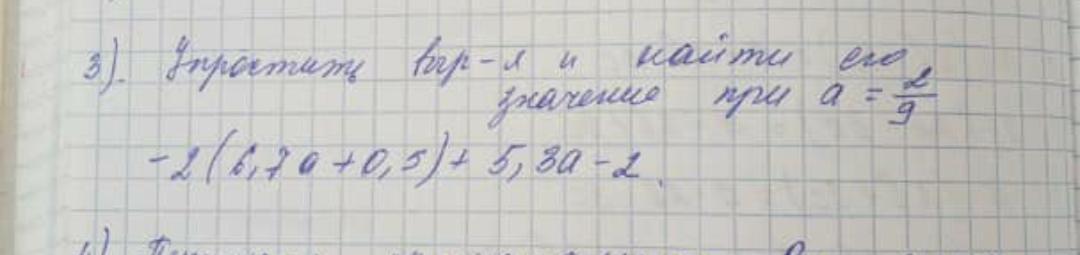 3). Упростить выр-я и найти его
значение при a = 2/9
-2(6,7a+0,5)+5,3a-2.
4)